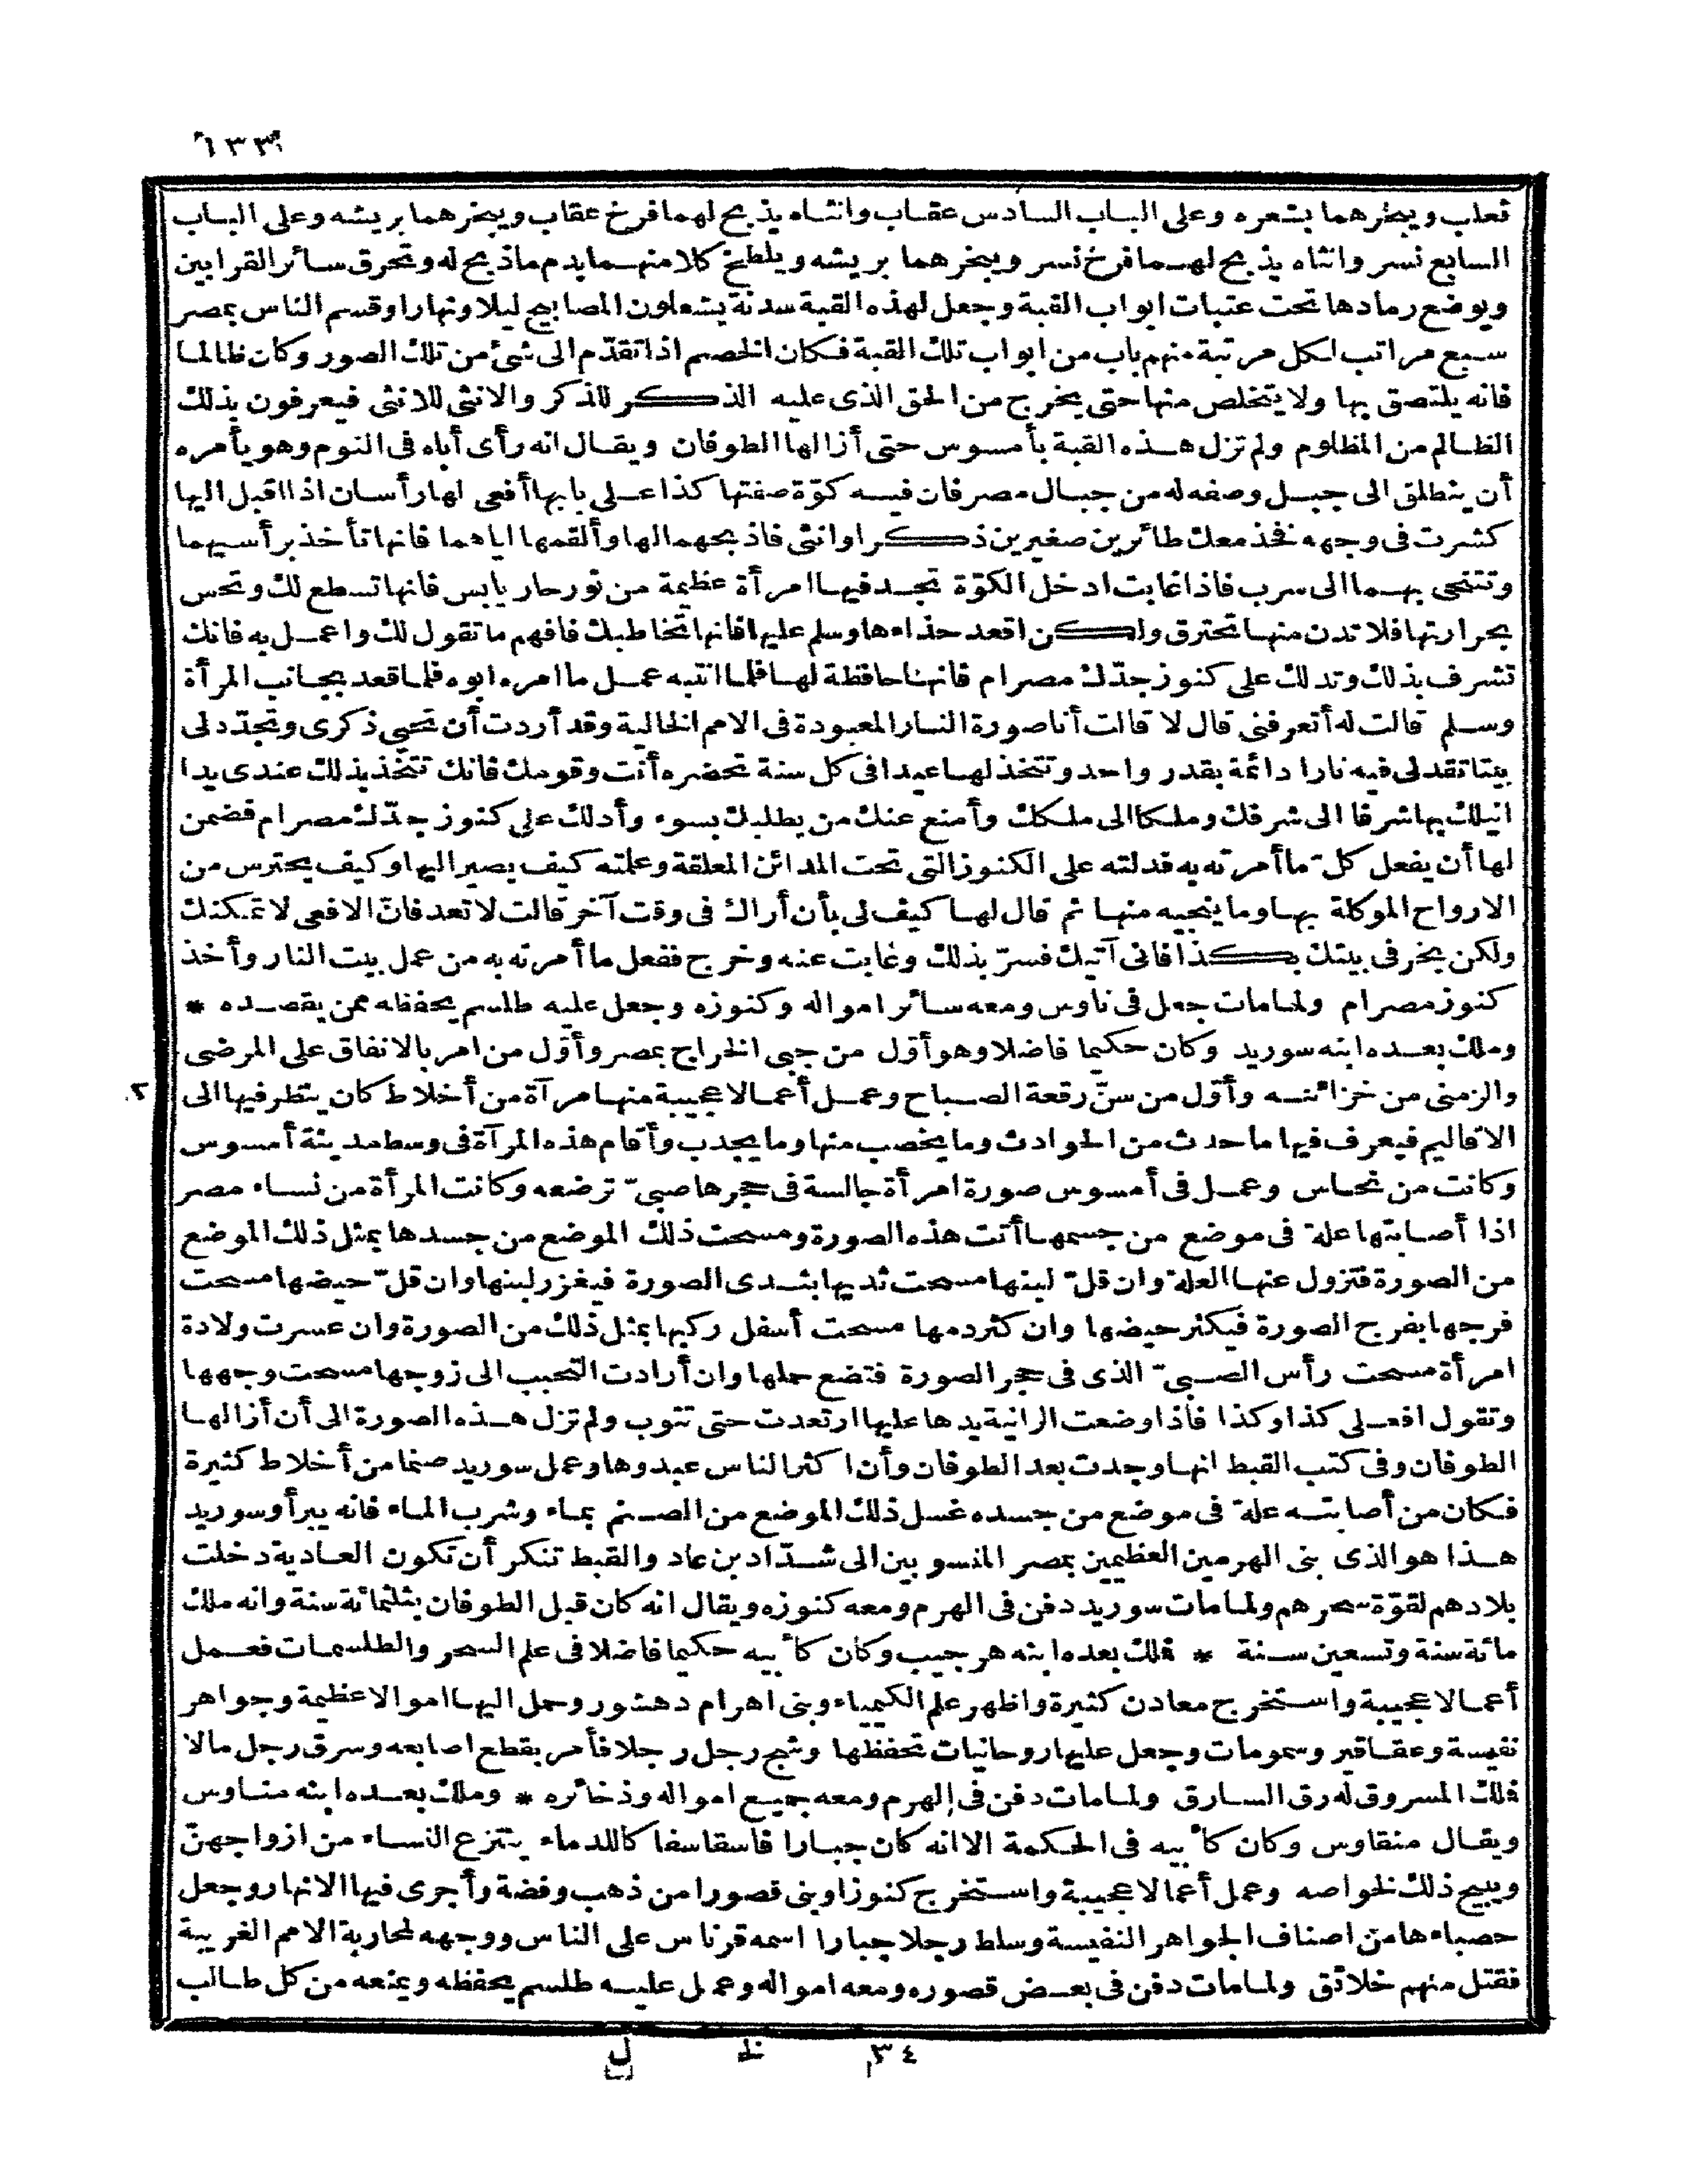 ١٣٣
ثعلب ويبخرهما بشعره وعلى الباب السادس عقاب وانثاه يذبح لهما فرخ عقاب ويبخرهما بريشه وعلى الباب
السابع نسر وانثاه يذبح لهما فرخ نسر ويبخرهما بريشه ويلطخ كلا منهما بدم ما ذبح له وتحرق سائر القرابين
ويوضع رمادها تحت عتبات ابواب القبة وجعل لهذه القبة سدنة يشعلون المصابيح ليلا ونهارا وقسم الناس بمصر
سبع مراتب لكل مرتبة منهم باب من ابواب تلك القبة فكان الخصم اذا تقدّم الى شئ من تلك الصور وكان ظالما
فانه يلتصق بها ولا يتخلص منها حتى يخرج من الحق الذى عليه الذكر للذكر والانثى للانثى فيعرفون بذلك
الظالم من المظلوم ولم تزل هذه القبة بأمسوس حتى أزالها الطوفان ويقال انه رأى أباه فى النوم وهو يأمره
أن ينطلق الى جبل وصفه له من جبال مصر فان فيه كوّة صفتها كذا على بابها أفعى لها رأسان اذا اقبل اليها
كشرت فى وجهه فخذ معك طائرين صغيرين ذكرا وانثى فاذبحهما لها وألقمها اياهما فانها تأخذ برأسيهما
وتتنحى بهما الى سرب فاذا غابت ادخل الكوّة تجد فيها امرأة عظيمة من نور حار يابس فانها تسطع لك وتحس
بحرارتها فلا تدن منها تحترق ولكن اقعد حذاءها وسلم عليها فانها تخاطبك فافهم ما تقول لك واعمل به فانك
تشرف بذلك وتدلك على كنوز جدّك مصرام فانها حافظة لها فلما انتبه عمل ما امره ابوه فلما قعد بجانب المرأة
وسلم قالت له أتعرفنى قال لا قالت أنا صورة النار المعبودة فى الامم الخالية وقد أردت أن تحيى ذكرى وتجدّد لى
بيتا تقد لى فيه نارا دائمة بقدر واحد وتتخذ لها عيدا فى كل سنة تحضره أنت وقومك فانك تتخذ بذلك عندى يدا
انيلك بها شرفا الى شرفك وملكا الى ملكك وأمنع عنك من يطلبك بسوء وأدلك على كنوز جدّك مصرام فضمن
لها أن يفعل كل ما أمرته به فدلته على الكنوز التى تحت المدائن المعلقة وعلمته كيف يصير اليها وكيف يحترس من
الارواح الموكلة بها وما ينجيه منها ثم قال لها كيف لى بأن أراك فى وقت آخر قالت لا تعد فانّ الافعى لا تمكنك
ولكن بخر فى بيتك بكذا فانى آتيك فسرّ بذلك وغابت عنه وخرج ففعل ما أمرته به من عمل بيت النار وأخذ
كنوز مصرام ولما مات جعل فى ناوس ومعه سائر امواله وكنوزه وجعل عليه طلسم يحفظه ممن يقصده *
وملك بعده ابنه سوريد وكان حكيما فاضلا وهو أوّل من جبى الخراج بمصر وأوّل من امر بالانفاق على المرضى
والزمنى من خزائنه وأوّل من سنّ رقعة الصباح وعمل أعمالا عجيبة منها مرآة من أخلاط كان ينظر فيها الى
الاقاليم فيعرف فيها ما حدث من الحوادث وما يخصب منها وما يجدب وأقام هذه المرآة فى وسط مدينة أمسوس
وكانت من نحاس وعمل فى أمسوس صورة امرأة جالسة فى حجرها صبىّ ترضعه وكانت المرأة من نساء مصر
اذا أصابتها علة فى موضع من جسمها أتت هذه الصورة ومسحت ذلك الموضع من جسدها بمثل ذلك الموضع
من الصورة فتزول عنها العلة وان قلّ لبنها مسحت ثديها بثدى الصورة فيغزر لبنها وان قلّ حيضها مسحت
فرجها بفرج الصورة فيكثر حيضها وان كثر دمها مسحت أسفل ركبها بمثل ذلك من الصورة وان عسرت ولادة
امرأة مسحت رأس الصبىّ الذى فى حجر الصورة فتضع حملها وان أرادت التحبب الى زوجها مسحت وجهها
وتقول افعلى كذا وكذا فاذا وضعت الزانية يدها عليها ارتعدت حتى تتوب ولم تزل هذه الصورة الى أن أزالها
الطوفان وفى كتب القبط انها وجدت بعد الطوفان وأن اكثر الناس عبدوها وعمل سوريد صنما من أخلاط كثيرة
فكان من أصابته علة فى موضع من جسده غسل ذلك الموضع من الصنم بماء وشرب الماء فانه يبرأ وسوريد
هذا هو الذى بنى الهرمين العظيمين بمصر المنسوبين الى شدّاد بن عاد والقبط تنكر أن تكون العادية دخلت
بلادهم لقوّة سحرهم ولما مات سوريد دفن فى الهرم ومعه كنوزه ويقال انه كان قبل الطوفان بثلثمائة سنة وانه ملك
مائة سنة وتسعين سنة * فملك بعده ابنه هرجيب وكان كأبيه حكيما فاضلا فى علم السحر والطلسمات فعمل
أعمالا عجيبة واستخرج معادن كثيرة واظهر علم الكيمياء وبنى اهرام دهشور وحمل اليها اموالا عظيمة وجواهر
نفيسة وعقاقير وسمومات وجعل عليها روحانيات تحفظها وشج رجل رجلا فأمر بقطع اصابعه وسرق رجل مالا
فملك المسروق له رق السارق ولما مات دفن فى الهرم ومعه جميع امواله وذخائره * وملك بعده ابنه مناوس
ويقال منقاوس وكان كأبيه فى الحكمة الا انه كان جبارا فاسقا سفاكا للدماء ينتزع النساء من ازواجهنّ
ويبيح ذلك لخواصه وعمل أعمالا عجيبة واستخرج كنوزا وبنى قصورا من ذهب وفضة وأجرى فيها الانهار وجعل
حصباءها من اصناف الجواهر النفيسة وسلط رجلا جبارا اسمه قرناس على الناس ووجهه لمحاربة الامم الغريبة
فقتل منهم خلائق ولما مات دفن فى بعض قصوره ومعه امواله وعمل عليه طلسم يحفظه ويمنعه من كل طالب
٣٤ ط ل